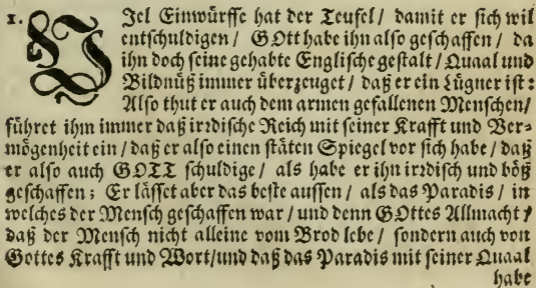 1. VJel Einwürffe hat der Teufel / damit er sich wil
entschuldigen / GOtt habe ihn also geschaffen / da
ihn doch seine gehabte Englische gestalt / Quaal und
Bildnüß immer überzeuget / daß er ein Lügner ist:
Also thut er auch dem armen gefallenen Menschen /
führet ihm immer daß irrdische Reich mit seiner Krafft und Ver-
mögenheit ein / daß er also einen stäten Spiegel vor sich habe / daß
er also auch GOTT schuldige / als habe er ihn irrdisch und böß
geschaffen; Er lässet aber das beste aussen / als das Paradis / in
welches der Mensch geschaffen war / und denn GOttes Allmacht /
daß der Mensch nicht alleine vom Brod lebe / sondern auch von
Gottes Krafft und Wort / und daß das Paradis mit seiner Quaal
habe